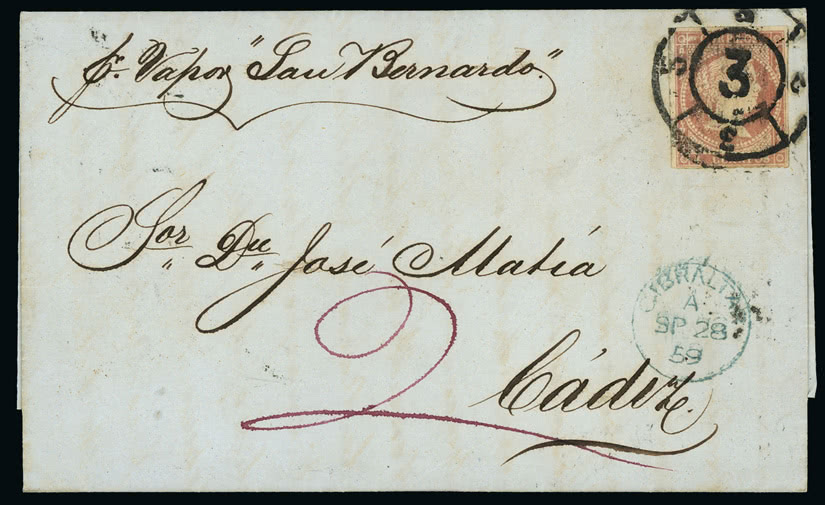 pr. Vapor "San Bernardo."
3
Sor. Dn. José Matia
GIBRALTAR
A
SP 28
59
2
Cádiz.